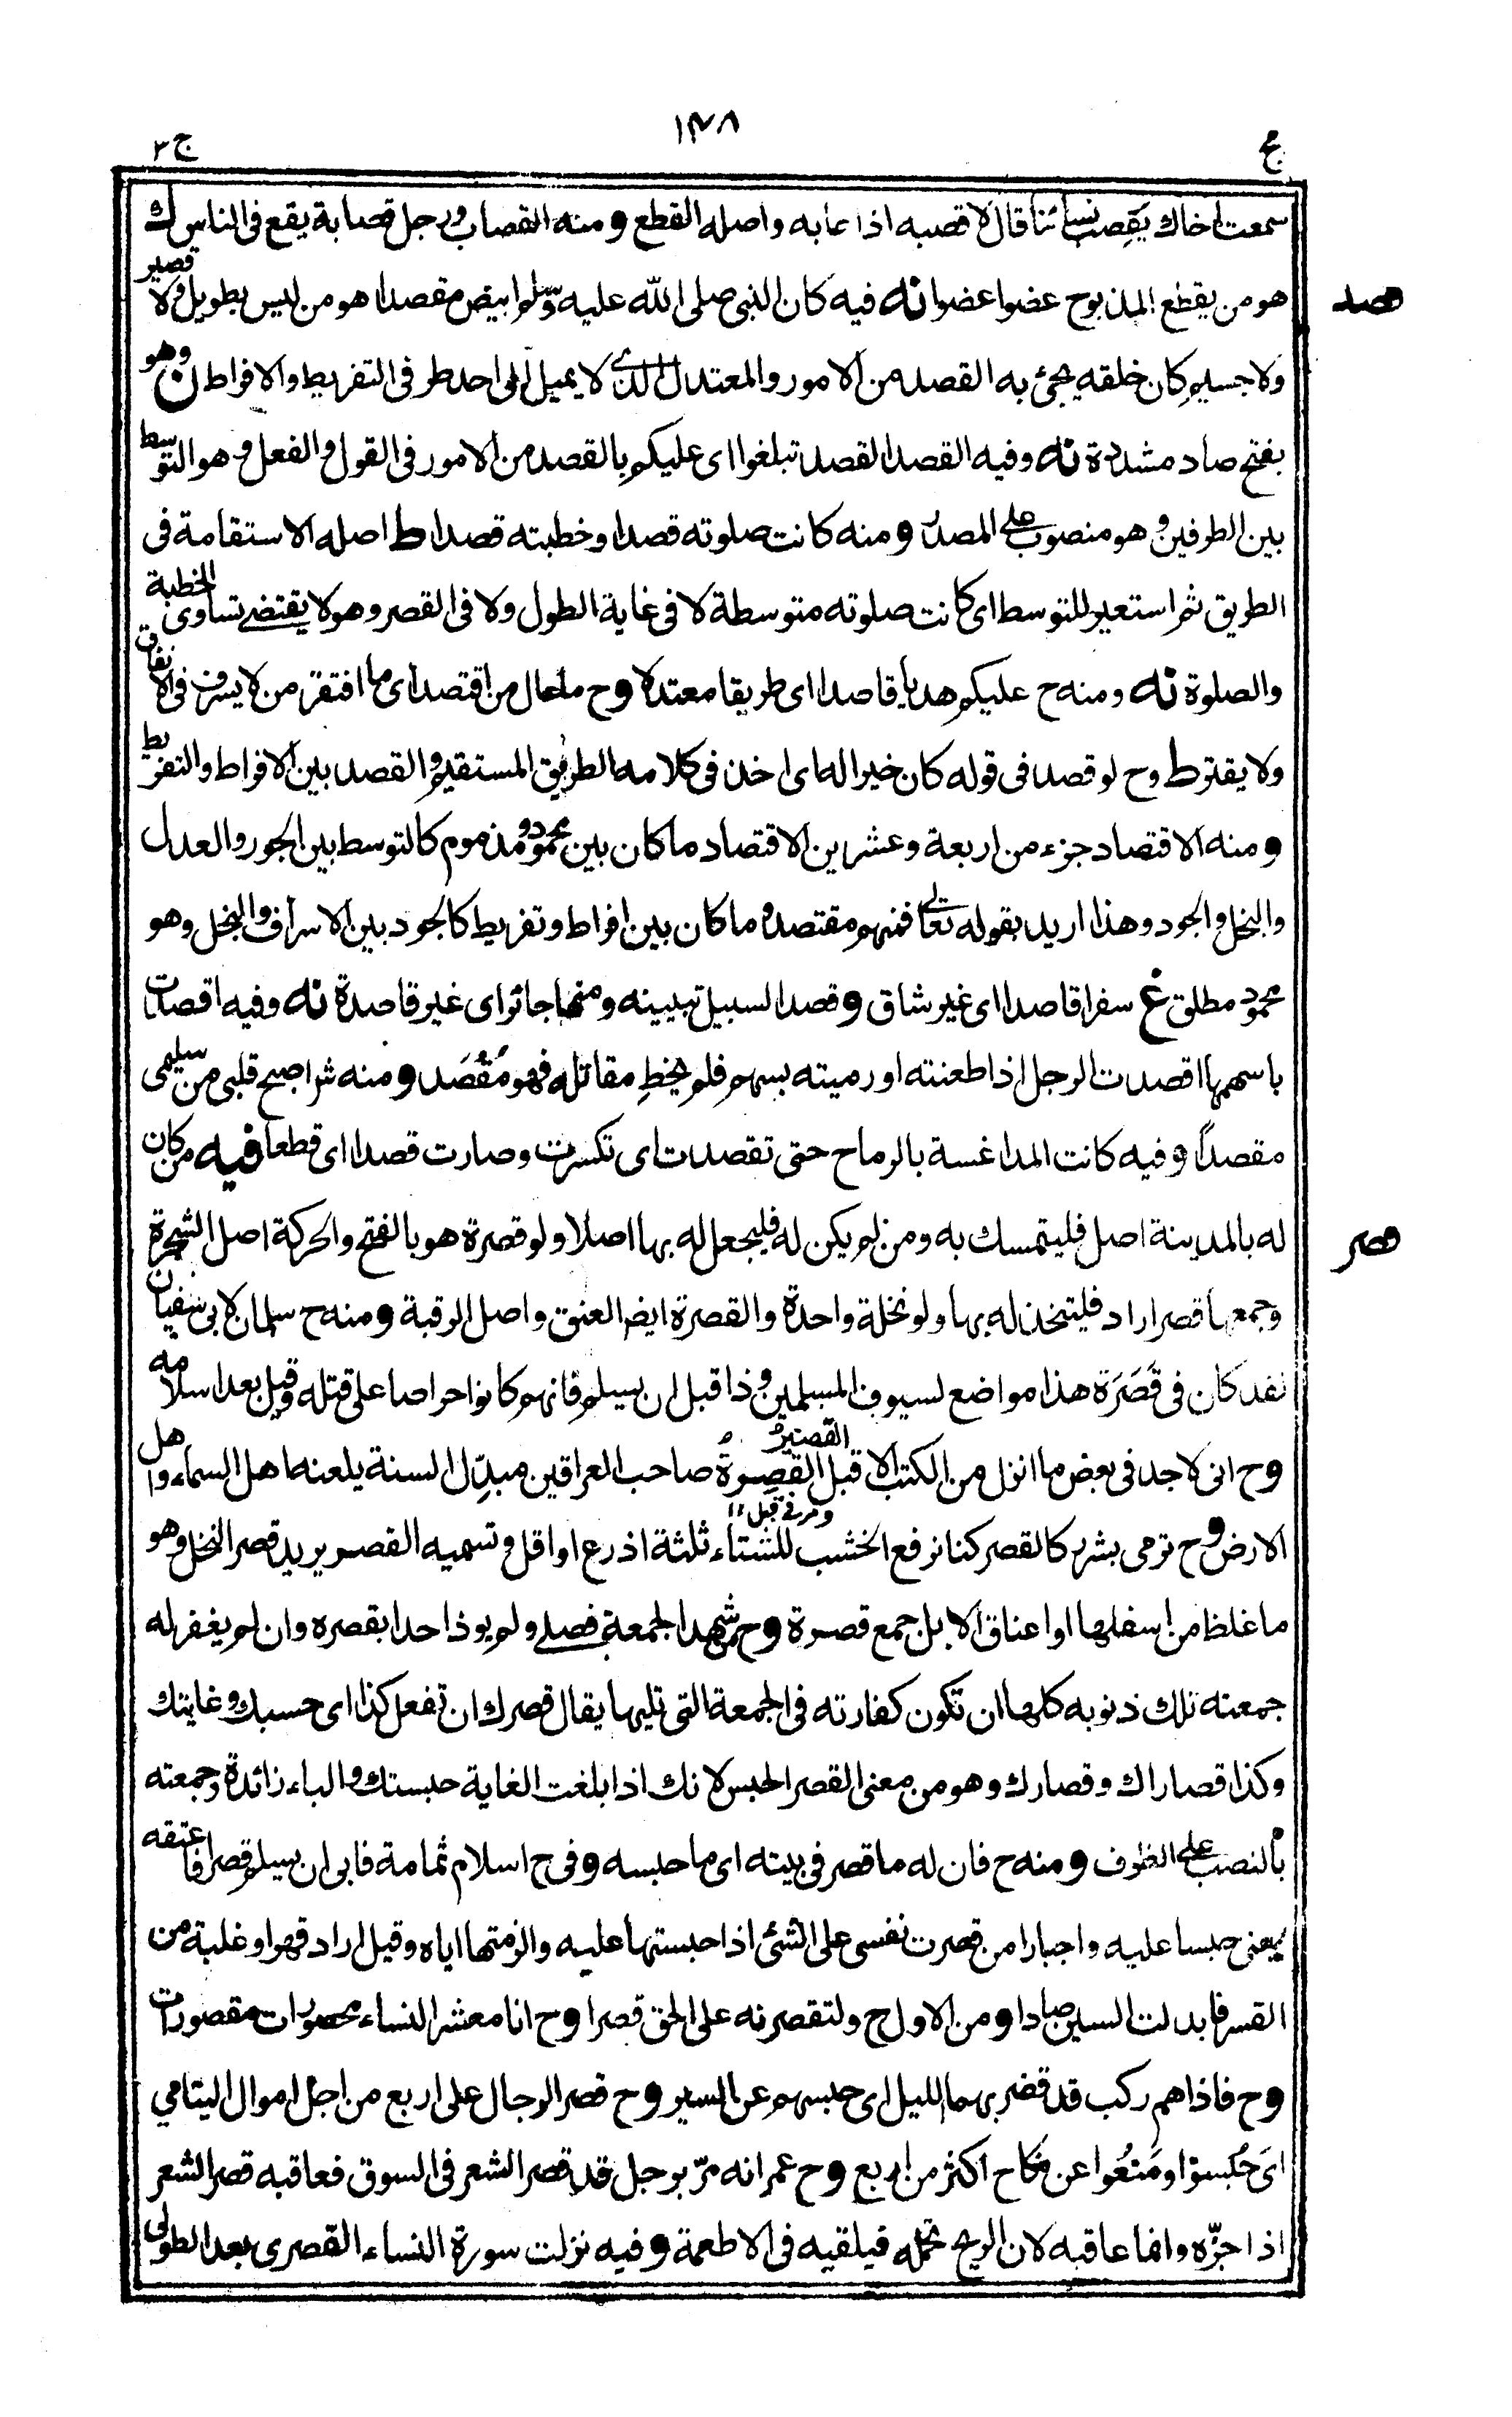 ١٤٨
مج
ج ٣
سمعت اخاك يَقصِب نساءنا قال لا قصبه اذا عابه واصله القطع ومنه القصاب ورجل قصابة يقع في الناس ك
هو من يقطع المذبوح عضوا عضوا نه فيه كان النبي صلى الله عليه وسلم ابيض مقصدا هو من ليس بطويل ولا قصير
قصد
ولا جسيم كان خلقه يجئ به القصد من الامور والمعتدل الذي لا يميل الى احد طرفي التفريط والافراط ن وهو
بفتح صاد مشددة نه وفيه القصد القصد تبلغوا اى عليكم بالقصد من الامور في القول والفعل وهو التوسط
بين الطرفين وهو منصوب على المصدر ومنه كانت صلوته قصدا وخطبته قصدا ط اصله الاستقامة في
الطريق ثم استعير للتوسط اى كانت صلوته متوسطة لا في غاية الطول ولا في القصر وهو لا يقتضى تساوى الخطبة
والصلوة نه ومنه ح عليكم هديا قاصدا اى طريقا معتدلا وح ما عال من اقتصد اى ما افتقر من لا يسرف في الانفاق
ولا يقتر ط وح لو قصد في قوله كان خيرا له اى اخذ في كلامه الطريق المستقيم والقصد بين الافراط والتفريط
ومنه الاقتصاد جزء من اربعة وعشرين الاقتصاد ما كان بين محمود ومذموم كالتوسط بين الجور والعدل
والبخل والجود وهذا اريد بقوله تعالى فمنهم مقتصد وما كان بين افراط وتفريط كالجود بين الاسراف والبخل وهو
محمود مطلق غ سفرا قاصدا اى غير شاق وقصد السبيل تبيينه ومنها جائر اى غير قاصدة نه وفيه اقصدت
باسهمها اقصدت الرجل اذا طعنته او رميته بسهم فلم يخط مقاتله فهو مُقْصَد ومنه شر اصبح قلبي من سليمى
مقصداً وفيه كانت المداعسة بالرماح حتى تقصدت اى تكسرت وصارت قصدا اى قطعا فيه من كان
له بالمدينة اصل فليتمسك به ومن لم يكن له فليجعل له بها اصلا ولو قصرة هو بالفتح والحركة اصل الشجرة
قصر
وجمعها قصر اراد فليتخذ له بها ولو نخلة واحدة والقصرة ايضا العنق واصل الرقبة ومنه ح سلمان لابي سفيان
لقد كان في قَصَرَة هذا مواضع لسيوف المسلمين وذا قبل ان يسلم فانهم كانوا حراصا على قتله وقيل بعد اسلامه
وح انى لاجد في بعض ما انزل من الكتب الاقبل القصير القصرة صاحب العراقين مبدّل السنة يلعنه اهل السماء واهل
ومر في قبل ١١
الارض وح ترمى بشرر كالقصر كنا نرفع الخشب للشتاء ثلثة اذرع او اقل وتسميه القصر يريد قصر النخل وهو
ما غلظ من اسفلها او اعناق الابل جمع قصرة وح من شهد الجمعة فصلى ولم يوذ احدا بقصره وان لم يغفر له
جمعته تلك ذنوبه كلها ان تكون كفارته في الجمعة التي تليها يقال قصرك ان تفعل كذا اى حسبك وغايتك
وكذا قصاراك وقصارك وهو من معنى القصر الحبس لانك اذا بلغت الغاية حبستك والباء زائدة وجمعته
بالنصب على الظرف ومنه ح فان له ما قصر في بيته اى ما حبسه وفي ح اسلام ثمامة فابى ان يسلم قصرا فاعتقه
يعني حبسا عليه واجبارا من قصرت نفسي على الشئ اذا حبستها عليه والزمتها اياه وقيل اراد قهرا وغلبة من
القسر فابدلت السين صادا ومن الاول ح ولتقصرنه على الحق قصرا وح انا معشر النساء محصورات مقصورات
وح فاذا هم ركب قد قصر بهم الليل اى حبسهم عن السير وح قصر الرجال على اربع من اجل اموال اليتامي
اى حُبسوا ومَنعُوا عن نكاح اكثر من اربع وح عمر انه مرّ برجل قد قصر الشعر في السوق فعاقبه قصر الشعر
اذا جزّه وانما عاقبه لان الريح تحمله فيلقيه في الاطعمة وفيه نزلت سورة النساء القصرى بعد الطولى